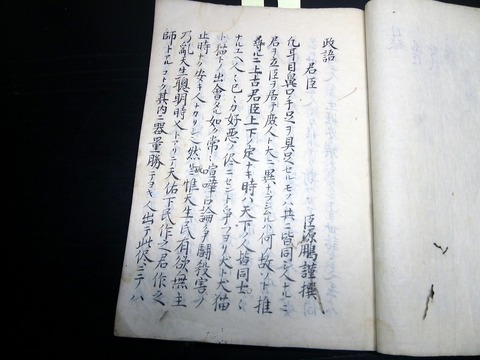 政語
君臣
臣源鵬謹撰
凡耳目鼻口手足ヲ具足セルモノハ共ニ皆同シ人ナルニ
君ヲ立臣ヲ居テ度人ト大ニ異ナラシムルハ何故ソト推
尋ルニ上古君臣上下ノ定ナキ時ハ天下ノ人皆同士
ナルハ人々已カ好悪ノ侭ニセント争フヨリ犬ト犬猫
ト猫トノ出會タル如ク常ニ喧嘩口論シ争闘殺害ノ
止時ナク安キ人ナカリシ然ニ惟天生民有欲無主
乃亂天生聰明時乂トアリテ天佑下民作之君作之
師トアルコトク其内ニ器量勝テヨキ人出テ此侭ニテハ